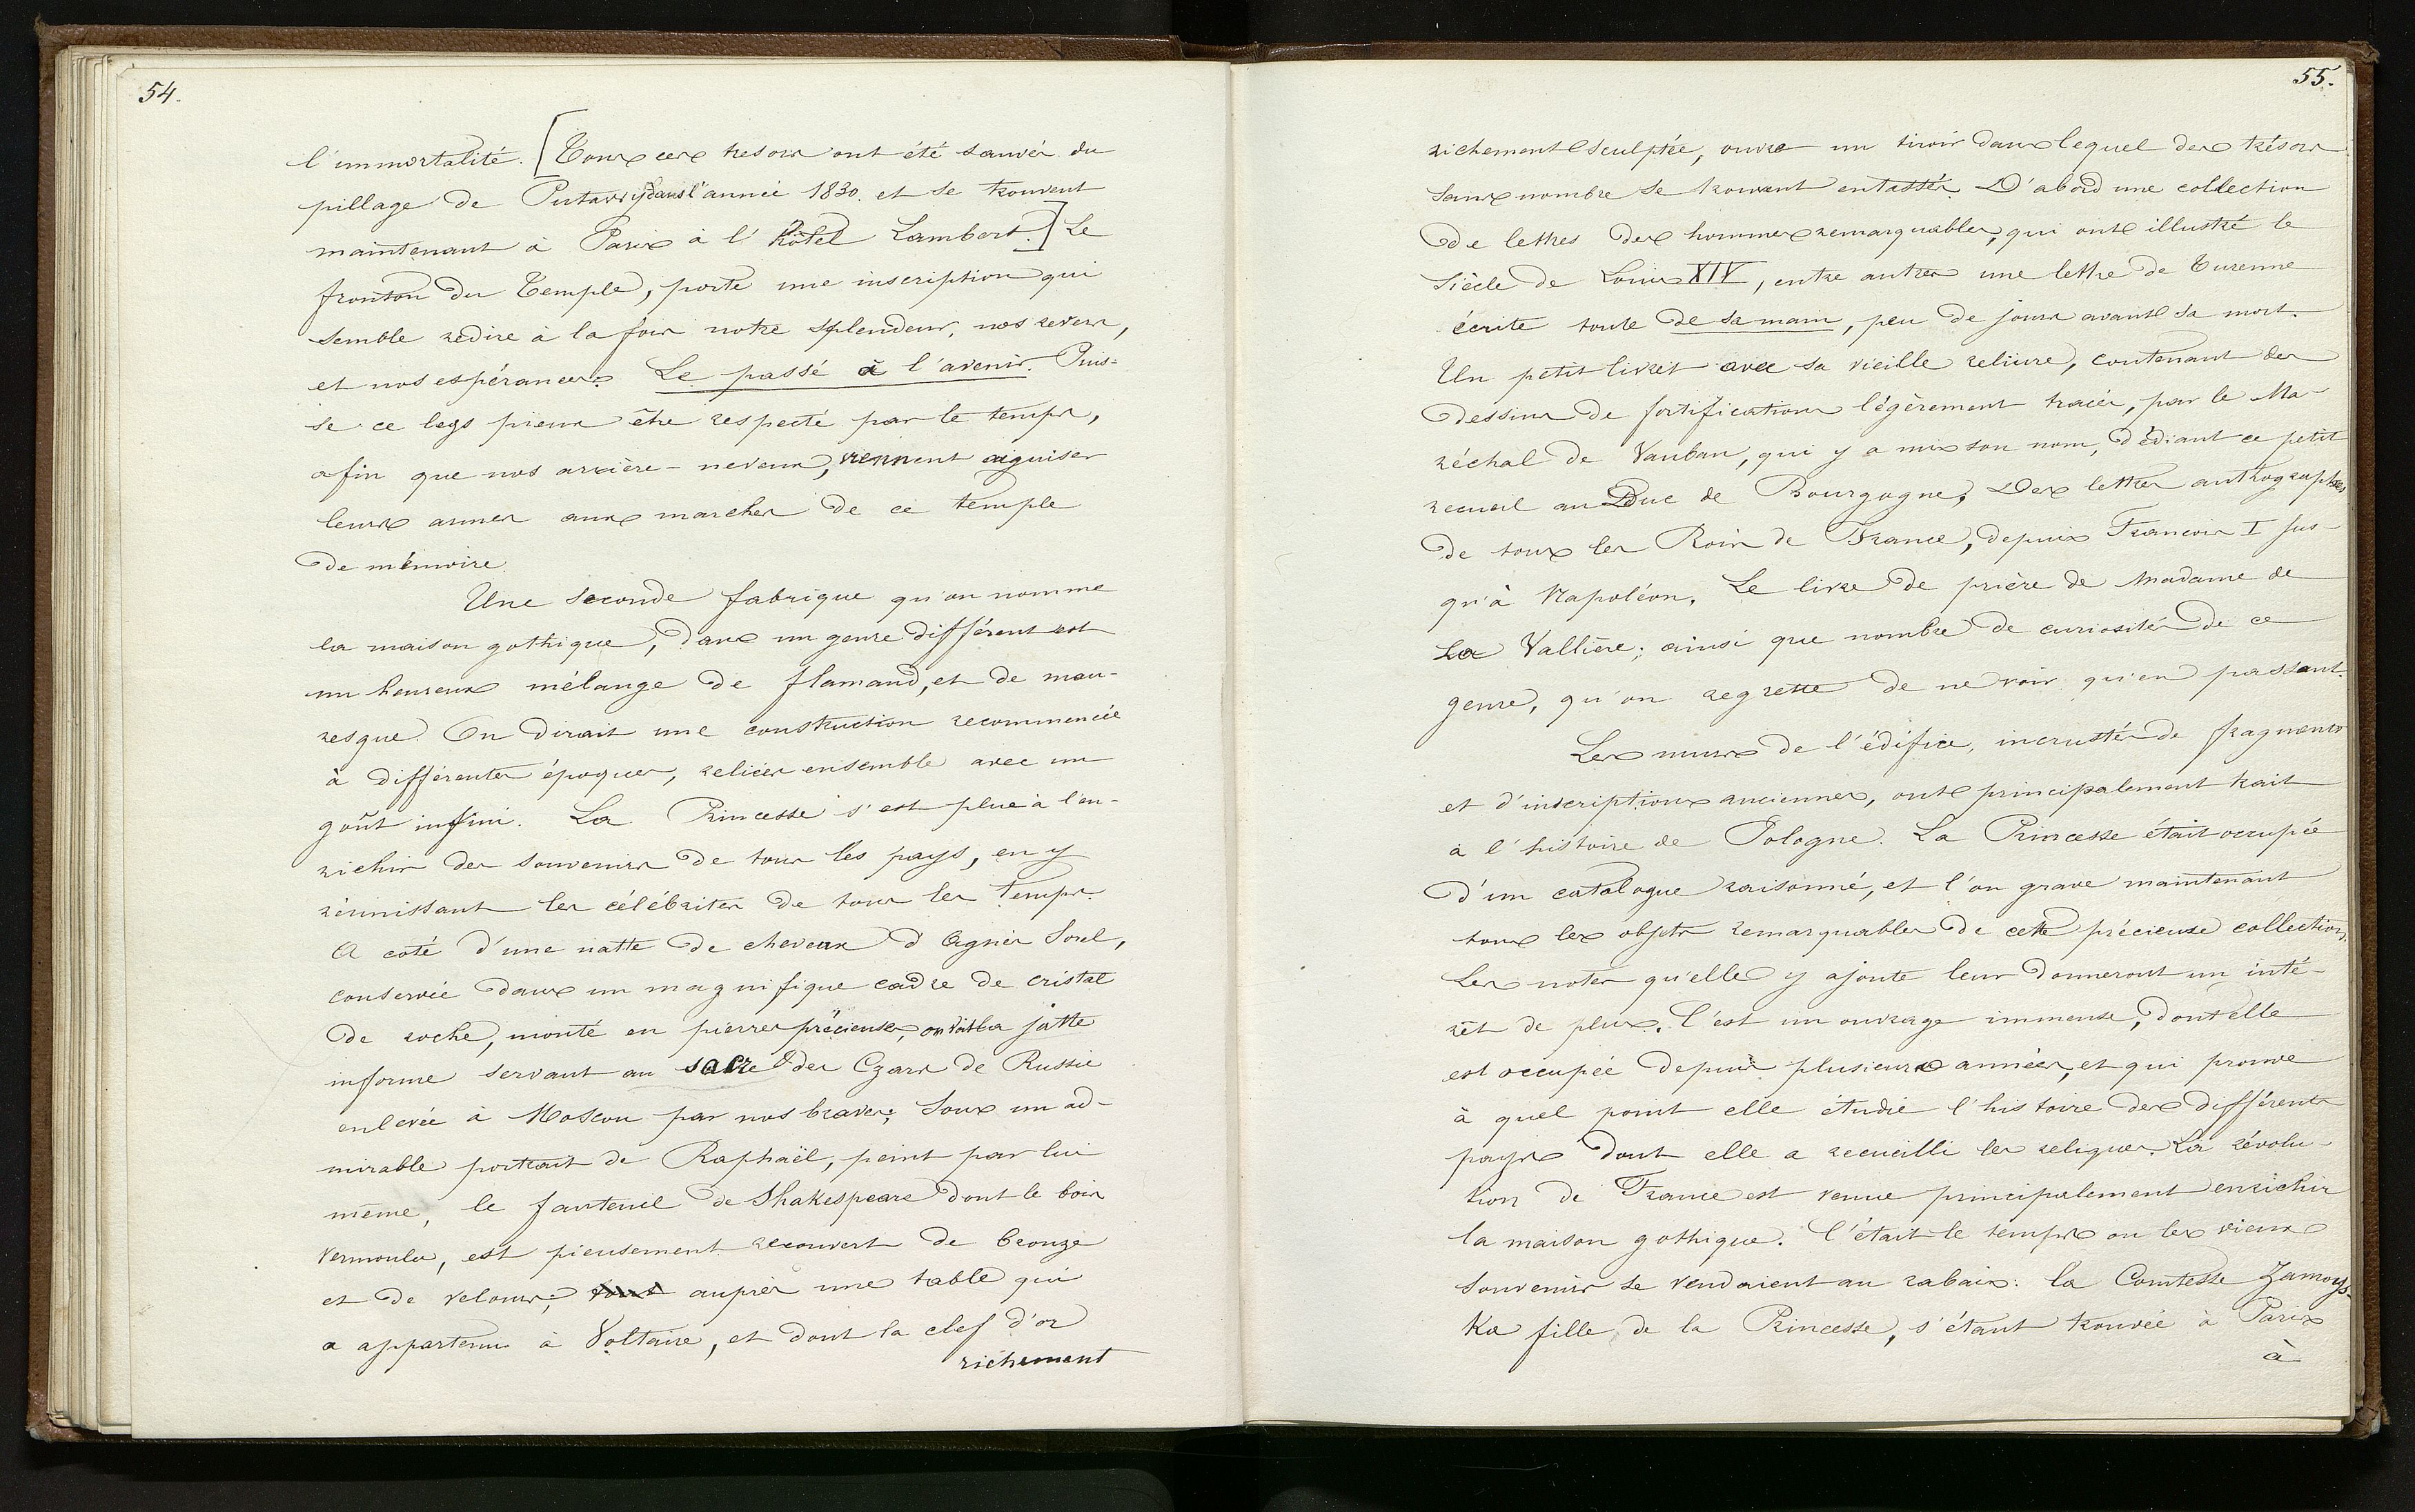 54.
l'immortalité. [Tous ces tresors ont été sauvés du
pillage de Putawy dans l'année 1830. et se trouvent
maintenant à Paris à l'hôtel Lambert.] Le
fronton du Temple, porte une inscription qui
semble redire à la fois notre splendeur, nos revers,
et nos espérances. Le passé à l'avenir. Puis=
se ce legs pieux être respecté par le temps,
afin que nos arrière-neveux, viennent aiguiser
leurs armes aux marches de ce temple
de mémoire.
Une seconde fabrique qu'on nomme
la maison gothique, dans un genre différent est
un heureux mélange de flamand, et de mau-
resque. On dirait une construction recommencée
à différentes époques, reliées ensemble avec un
goût infini. La Princesse s'est plue à l'en-
richir des souvenirs de tous les pays, en y
réunissant les célébrités de tous les temps.
A coté d'une natte de cheveux d'Agnès Sorel,
conservée dans un magnifique cadre de cristal
de roche, monté en pierres précieuses, on voit la jatte
informe servant au sacre des Czars de Russie
enlevée à Moscou par nos braves; Sous un ad-
mirable portrait de Raphaël, peint par lui
même, le fauteuil de Shakespeare dont le bois
vermoulu, est pieusement recouvert de bronze
et de velours; tout auprès une table qui
a appartenu à Voltaire, et dont la clef d'or
richement
55.
richement sculptée, ouvre un tiroir dans lequel des trésors
sans nombre se trouvent entassés. D'abord une collection
de lettres des hommes remarquables, qui ont illustré le
siècle de Louis XIV, entre autres une lettre de Turenne
écrite toute de sa main, peu de jours avant sa mort.
Un petit livret avec sa vieille reliure, contenant des
dessins de fortifications légèrement tracés, par le Ma-
réchal de Vauban, qui y a mis son nom, dédiant ce petit
recueil au Duc de Bourgogne, Des lettres authographes
de tous les Rois de France, depuis Francois I jus-
qu'à Napoléon. Le livre de prière de Madame de
La Vallière; ainsi que nombre de curiosités de ce
genre, qu'on regrette de ne voir qu'en passant.
Les murs de l'édifice, incrustés de fragments
et d'inscriptions anciennes, ont principalement trait
à l'histoire de Pologne. La Princesse était occupée
d'un catalogue raisonné, et l'on grave maintenant
tous les objets remarquables de cette précieuse collection.
Les notes qu'elle y ajoute leur donneront un inté-
rêt de plus. C'est un ouvrage immense, dont elle
est occupée depuis plusieurs années, et qui prouve
à quel point elle étudie l'histoire des différents
pays dont elle a recueilli les reliques. La révolu-
tion de France est venue principalement enrichir
la maison gothique. C'était le temps ou les vieux
souvenirs se vendaient au rabais: la Comtesse Zamoys-
ka fille de la Princesse, s'étant trouvée à Paris
à